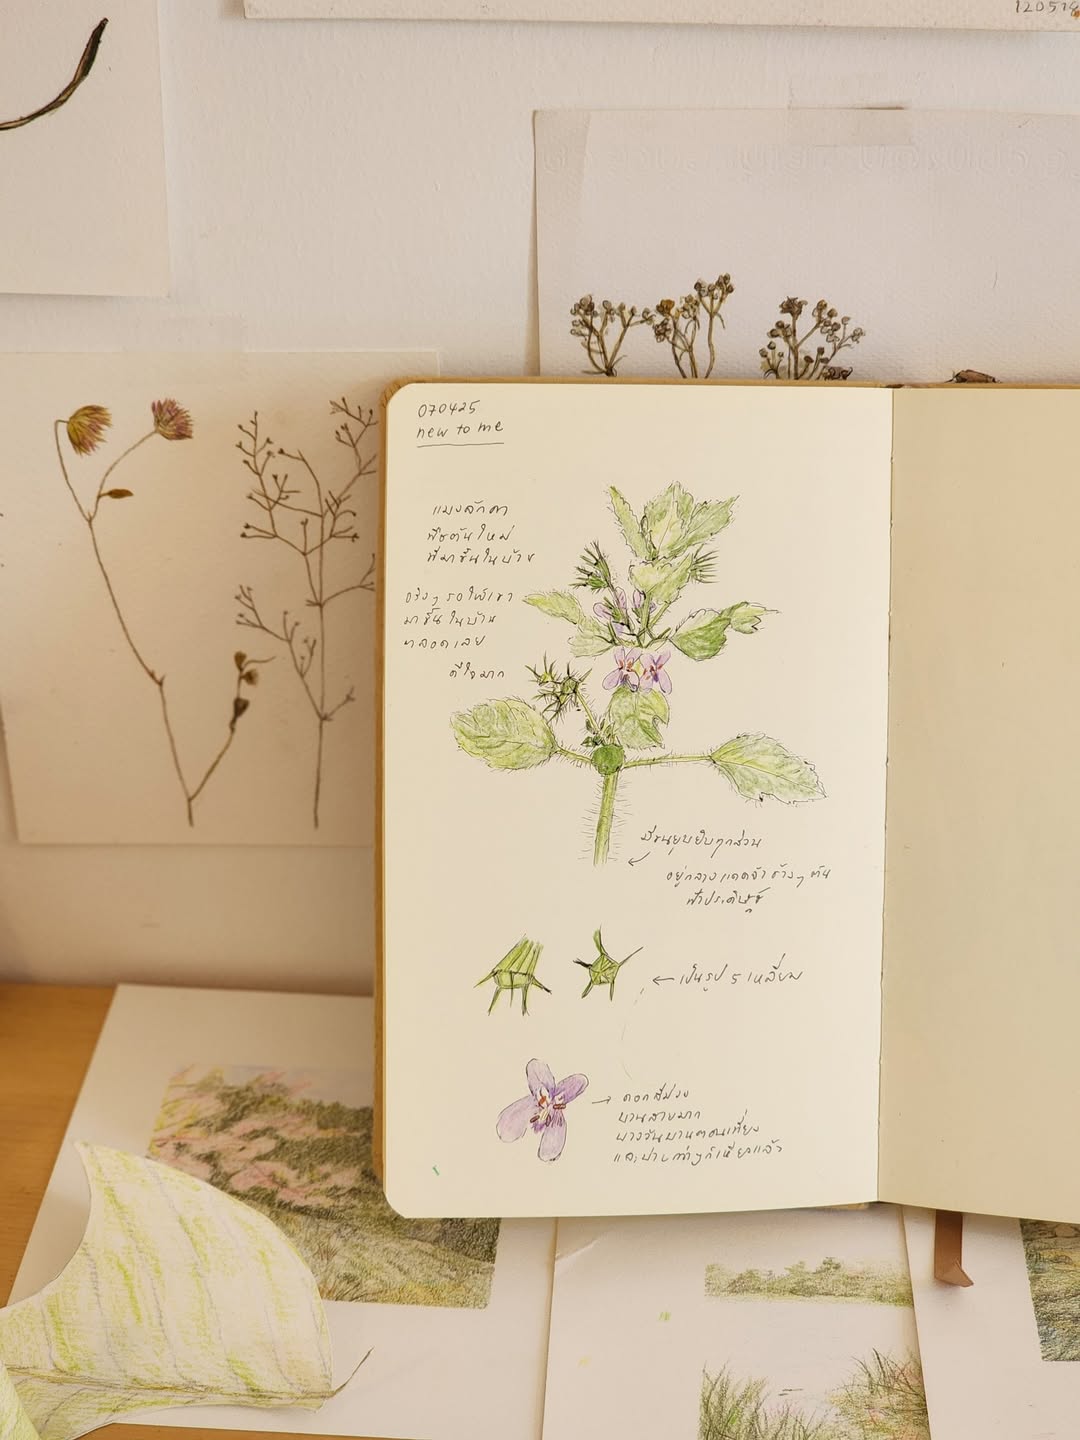 120514
070425
new to me
แมงลักคา
พืชต้นใหม่
ที่มาขึ้นในบ้าน
จริงๆ รอให้เขา
มาขึ้นในบ้าน
ตลอดเลย
ดีใจมาก
มีขนยุบยิบทุกส่วน
อยู่กลางแดดจ้า ข้างๆ ต้น
ฟ้าประดิษฐ์
เป็นรูป 5 เหลี่ยม
ดอกสีม่วง
บานสายมาก
บางวันบานตอนเที่ยง
และบ่ายกว่าๆก็เหี่ยวแล้ว